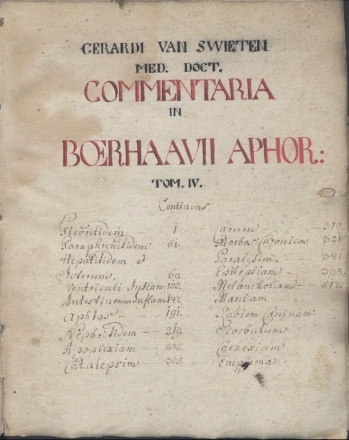 GERARDI VAN SWIETEN
MED. DOCT.
COMMENTARIA
IN
BŒRHAAVII APHOR.:
TOM. IV.
Continens.
Pleuritidem 1.
Paraphrenitidem 61.
Hepatitidem &
Icterum,
Ventriculi Inflam:
Intestinorum Inflam:
Aphtas 191.
Nephritidem 219.
Apoplexiam
Catalepsim
Carum
Morbos Chronicos
Paralysim.
Epilepsiam
Melancholiam
Maniam
Rabiem Caninam
Scorbutum
Cachexiam
Empyema